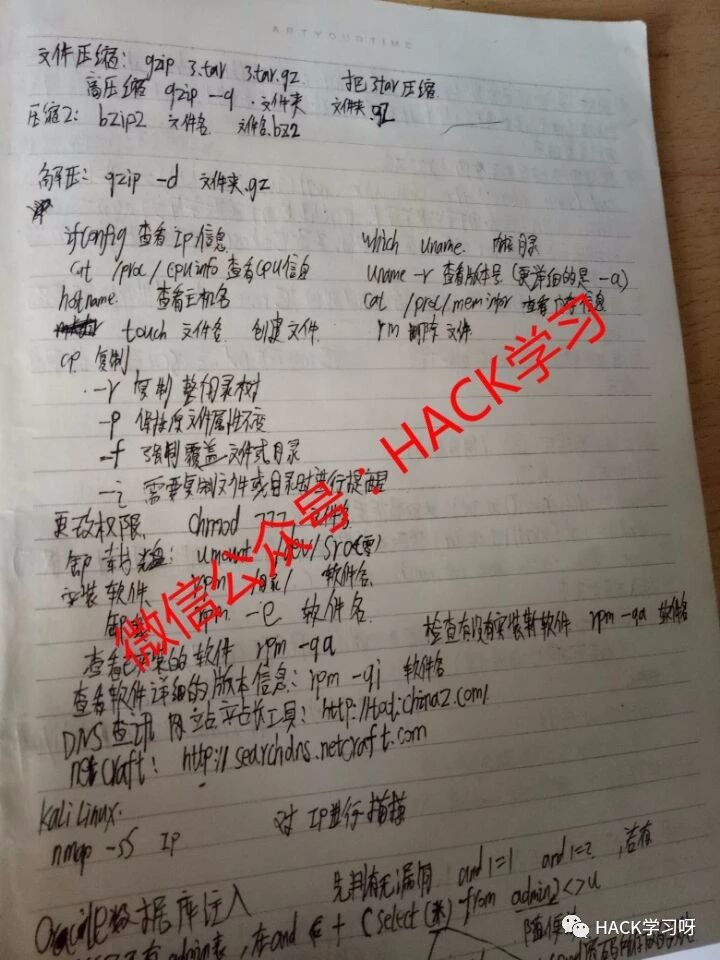 ARTYOURTIME
文件压缩: gzip 3.tar 3.tar.gz 把3tar压缩
高压缩 gzip --9 .文件夹 文件夹.gz
压缩2: bzip2 文件名 文件名.bz2
解压: gzip -d 文件夹.gz
ifconfig 查看IP信息 which uname. 内核目录
cat /proc/cpuinfo 查看CPU信息 uname -r 查看版本号 (更详细的是 -a)
hostname 查看主机名 cat /proc/meminfor 查看内存信息
touch 文件名 创建文件. rm 删除文件
cp 复制
-r 复制整个目录树
-p 保持原文件属性不变
-f 强制覆盖文件或目录
-i 需要复制文件或目录时进行提醒
更改权限 chmod 777 文件名
卸载光盘: umount /dev/sr0(零)
安装软件 rpm 软件名
卸载 rpm -e 软件名 检查有没有安装软件 rpm -qa 软件名
查看已安装的软件 rpm -qa
查看软件详细的版本信息: rpm -qi 软件名
DNS查讯 网站站长工具: http://tool.chinaz.com/
netcraft: http://searchdns.netcraft.com
Kali Linux.
nmap -sS IP 对IP进行扫描
先判有无漏洞 and 1=1 and 1=2 ,若有
Oracle数据库注入
admin表, 在and + (select (*) from admin) <>0
随便
微信公众号:HACK学习
HACK学习呀